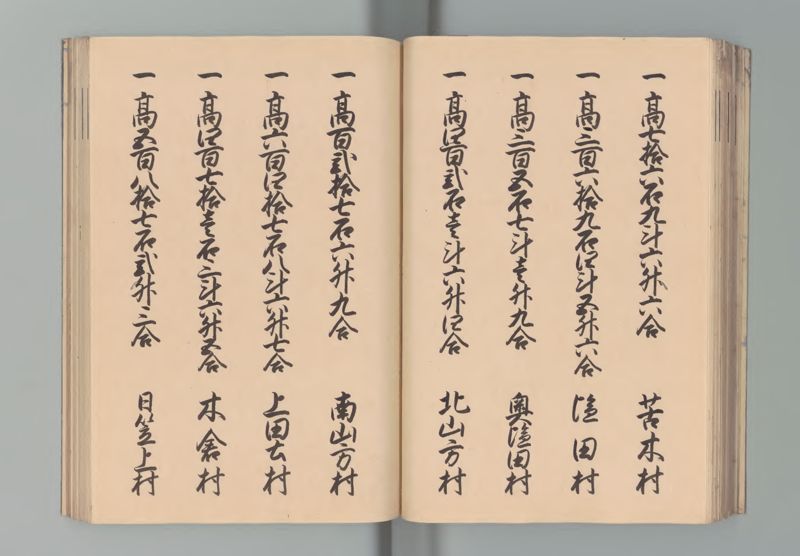 一 高七拾六石九斗六升六合 苫木村
一 高三百六拾九石四斗五升六合 塩田村
一 高三百五石七斗壱升九合 奥塩田村
一 高四百弐石壱斗六升四合 北山方村
一 高百弐拾七石六升九合 南山方村
一 高六百四拾七石八斗六升七合 上田土村
一 高四百七拾壱石三斗六升五合 木倉村
一 高五百八拾七石弐升三合 日笠上村